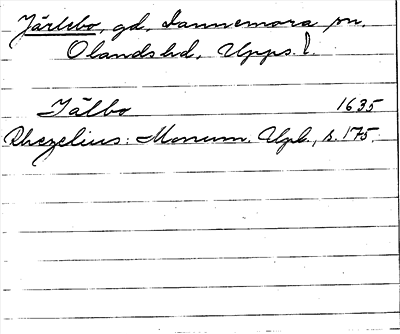 Järlebo, gd, Dannemora sn,
Olands hd, Upps. l.
Jälbo 1635
Rhezelius: Monum. Upl., s. 175.